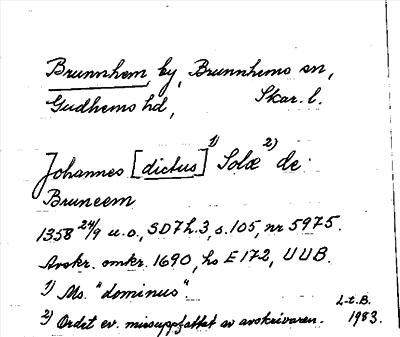 Brunnhem, by, Brunnhems sn,
Gudhems hd, Skar. l.
Johannes [dictus] 1) Solæ 2) de
Bruneem
1358 24/9 u.o., SD 7 h. 3, s. 105, nr 5975.
Avskr. omkr. 1690, hs E 172, UUB.
1) Ms. "dominus".
2) Ordet ev. missuppfattat av avskrivaren. L-t.B.
1983.